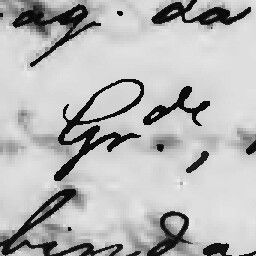 ag. da
Gr.de,
binda